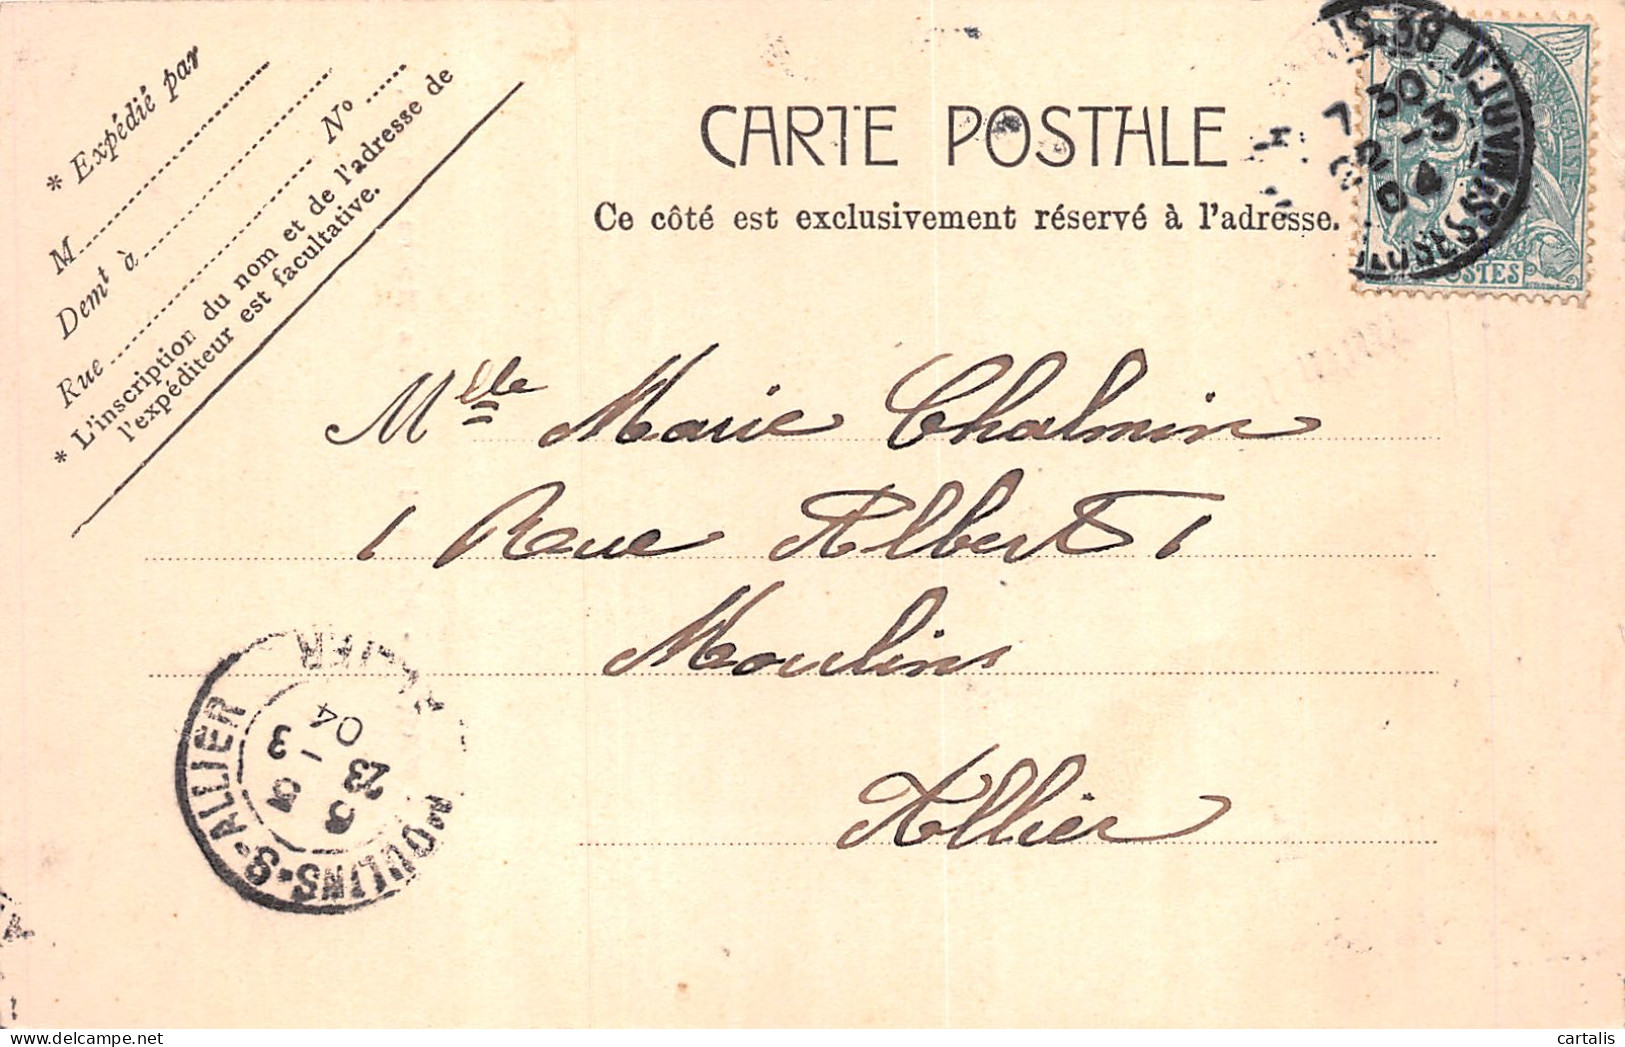 * Expédié par
M
Demt à
Rue
No
* L'inscription du nom et de l'adresse de
l'expéditeur est facultative.
CARTE POSTALE
Ce côté est exclusivement réservé à l'adresse.
7 30
2 -3
04
POSTES
Mlle Marie Chalmin
1 Rue Albert 1
Moulins
Allier
MOULINS-S-ALLIER
ALLIER
23 - 3
04
cartalis